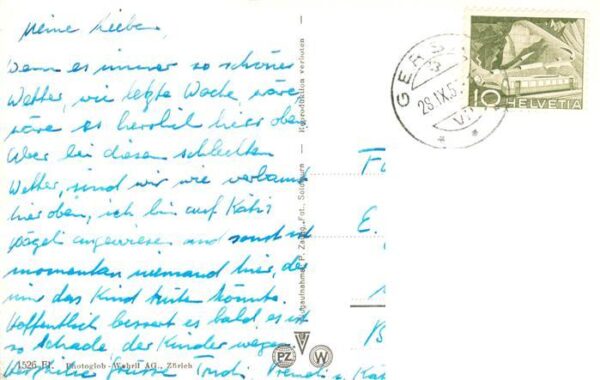 Meine Lieben,
Wenn es immer so schönes
Wetter, wie letzte Woche, wäre
wäre es herrlich hier oben
Aber bei diesem schlechten
Wetter, sind wir wie verbannt
hier oben, ich bin auf Käthi
angewiesen und sonst ist
momentan niemand hier, der
mir das Kind hüten könnte.
Hoffentlich bessert es bald, es ist
so schade der Kinder wegen
Herzliche Grüsse Trudi,
1526 Fl. Photoglob-Wehrli AG., Zürich
Reproduktion verboten
Flugaufnahme: P. Zaugg, Fot., Solothurn
PZ
W
GERSAU
28.IX.5
10 HELVETIA
F
E.
B